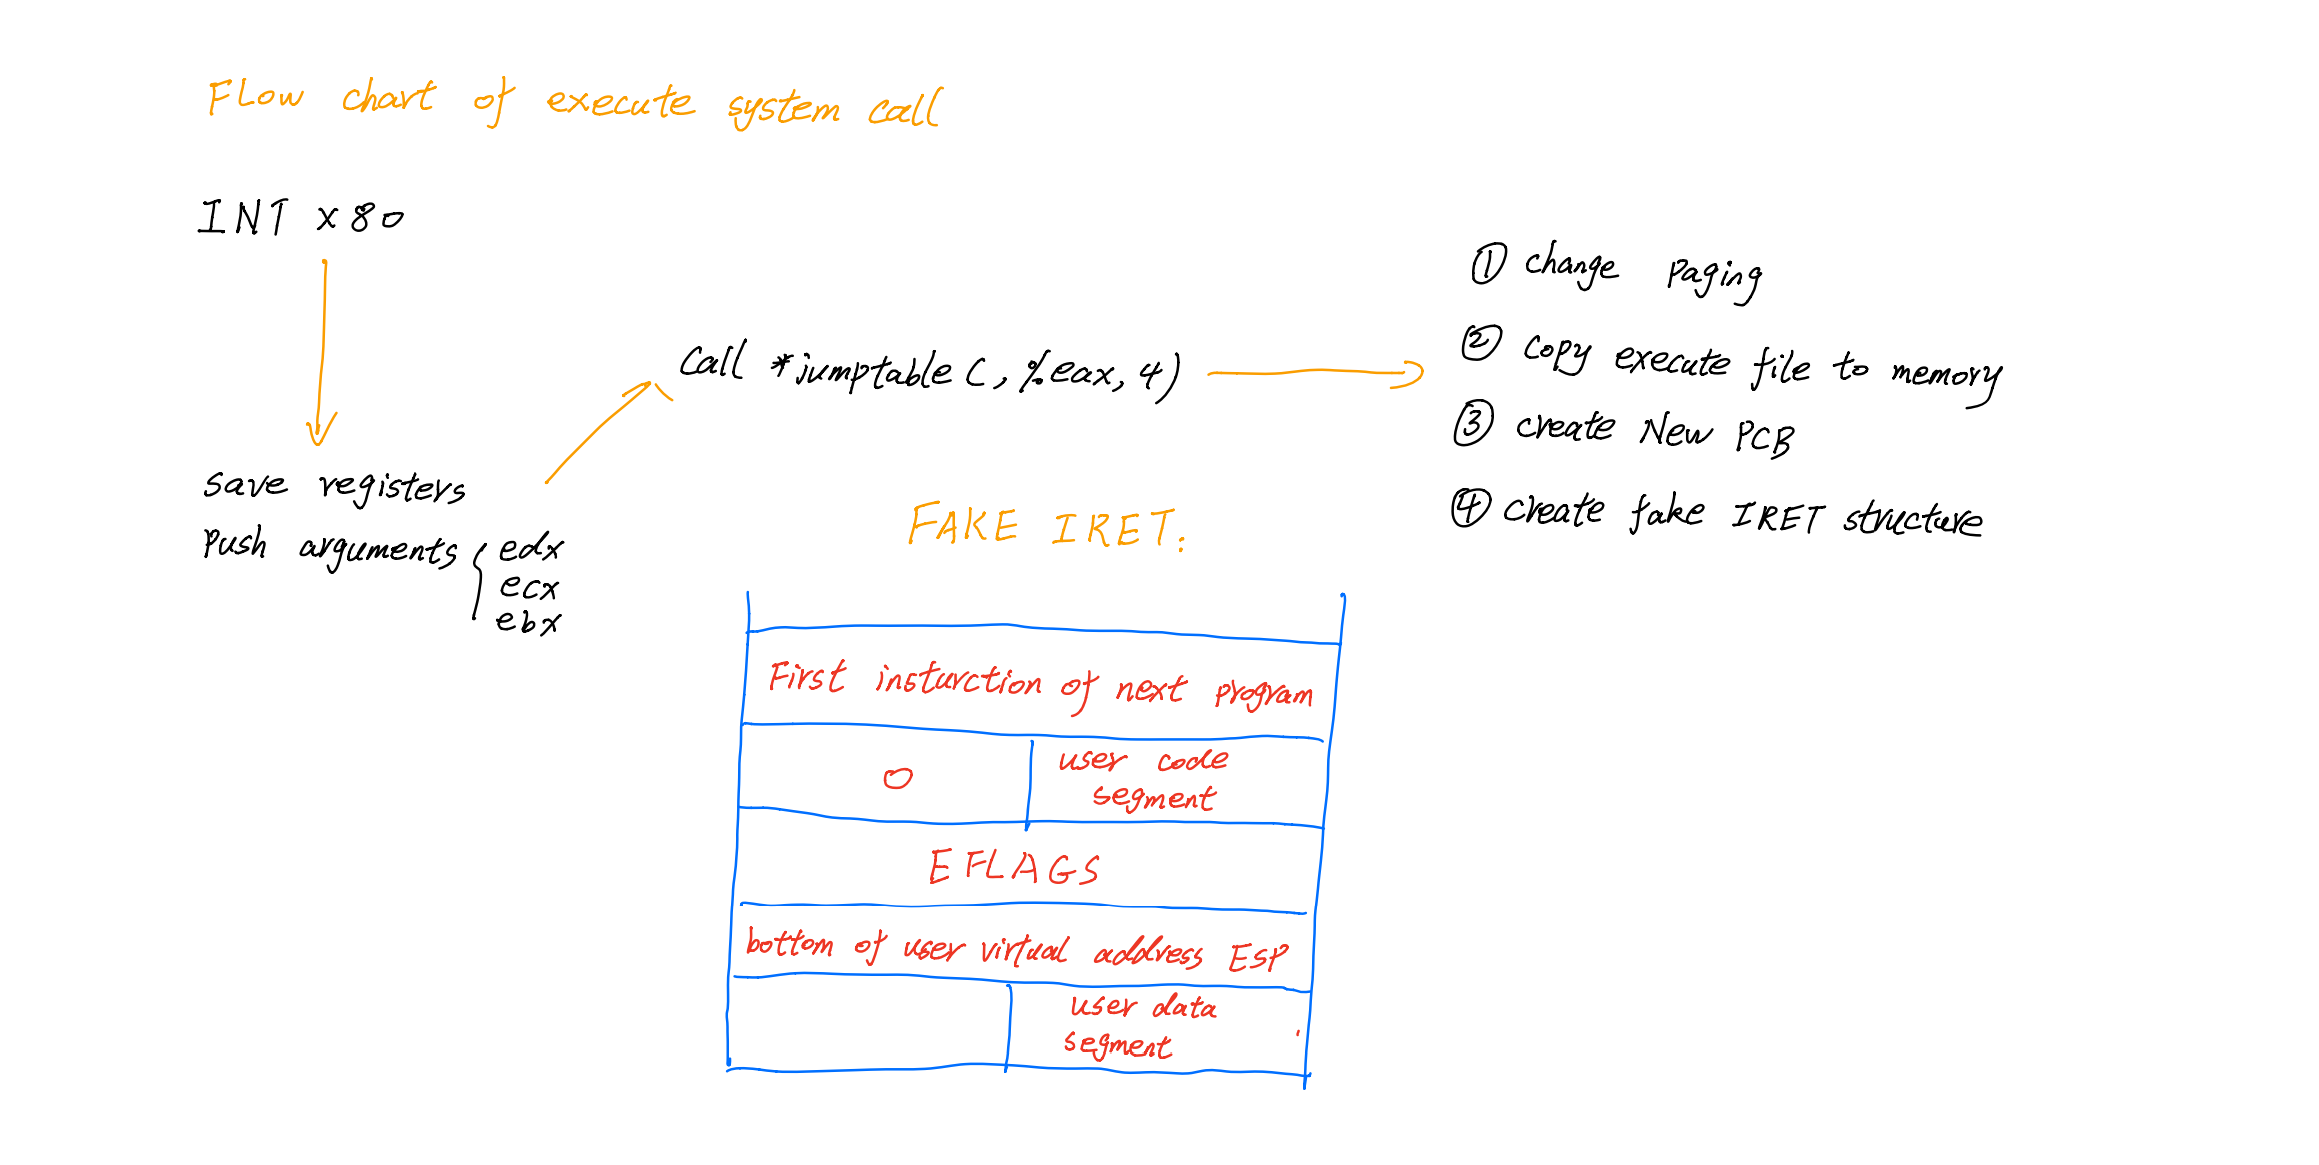 Flow chart of execute system call
INT x80
save registers
push arguments { edx
ecx
ebx
Call *jumptable(,%eax,4)
① change paging
② copy execute file to memory
③ create New PCB
④ create fake IRET structure
FAKE IRET:
First insturction of next program
0
user code
segment
EFLAGS
bottom of user virtual address ESP
user data
segment